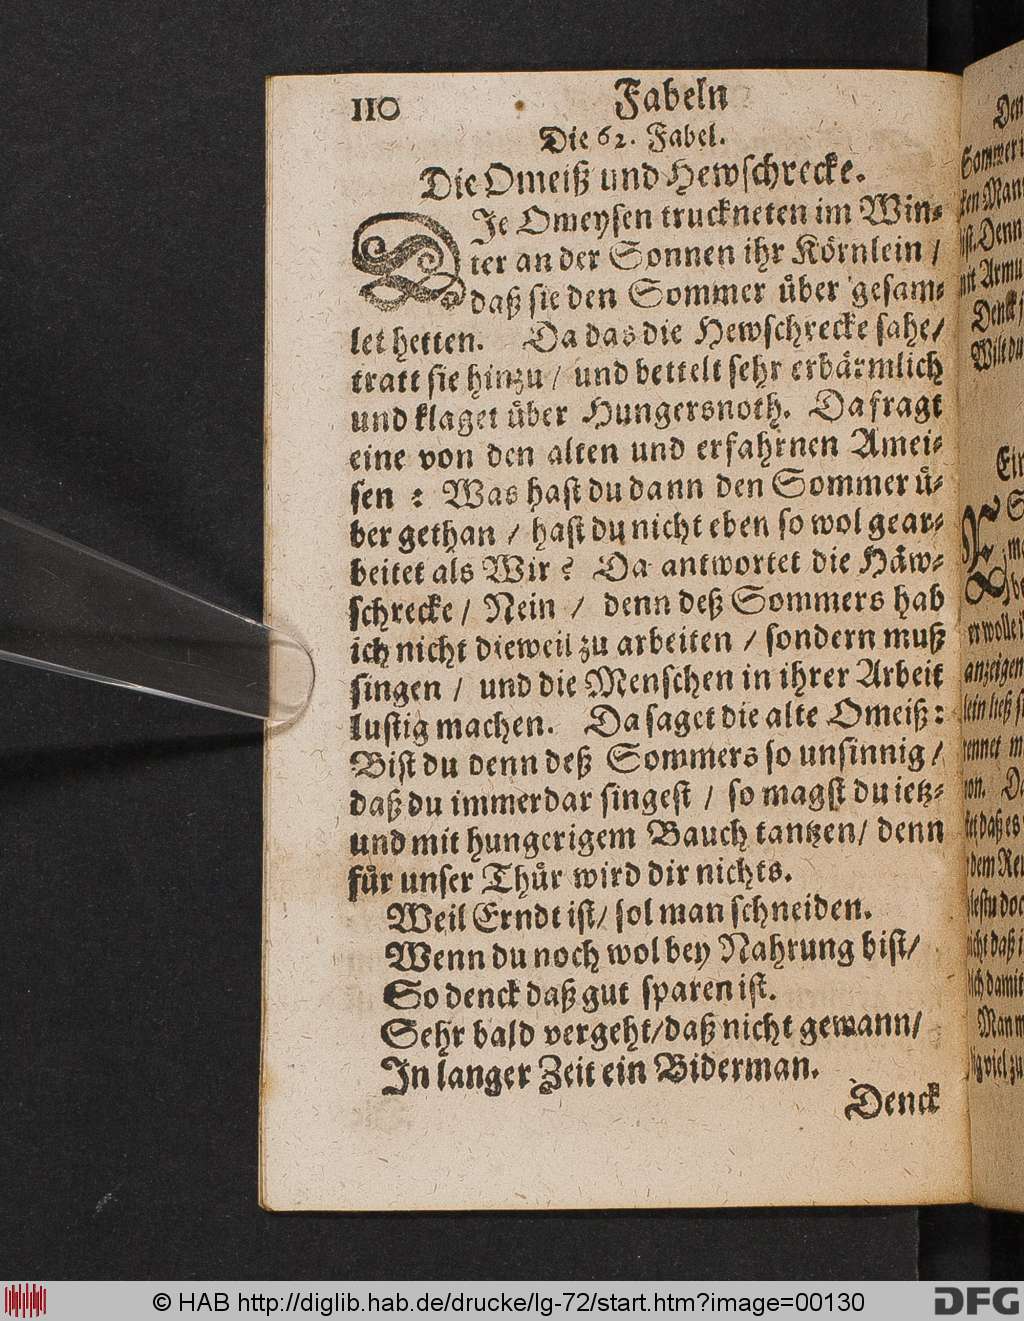 110 Fabeln
Die 62. Fabel.
Die Omeiß und Hewschrecke.
DIe Omeysen truckneten im Win-
ter an der Sonnen ihr Körnlein /
daß sie den Sommer über gesam-
let hetten. Da das die Hewschrecke sahe/
tratt sie hinzu / und bettelt sehr erbärmlich
und klaget über Hungersnoth. Da fragt
eine von den alten und erfahrnen Amei-
sen : Was hast du dann den Sommer ü-
ber gethan / hast du nicht eben so wol gear-
beitet als Wir ? Da antwortet die Häw-
schrecke / Nein / denn deß Sommers hab
ich nicht dieweil zu arbeiten / sondern muß
singen / und die Menschen in ihrer Arbeit
lustig machen. Da saget die alte Omeiß:
Bist du denn deß Sommers so unsinnig /
daß du immerdar singest / so magst du ietz-
und mit hungerigem Bauch tantzen / denn
für unser Thür wird dir nichts.
Weil Erndt ist/ sol man schneiden.
Wenn du noch wol bey Nahrung bist/
So denck daß gut sparen ist.
Sehr bald vergeht/daß nicht gewann/
In langer Zeit ein Biderman.
Denck
Denn
mit Armu
Denck
Wilt du
Ein
er wolle
anzeigen
lein ließ
rennet
von.
daß es
dem
doc
daß
damit
viel zu
© HAB http://diglib.hab.de/drucke/lg-72/start.htm?image=00130
DFG